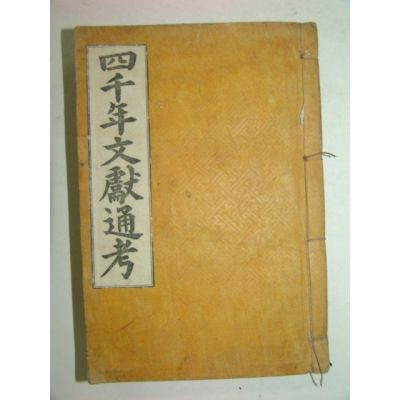 四千年文獻通考